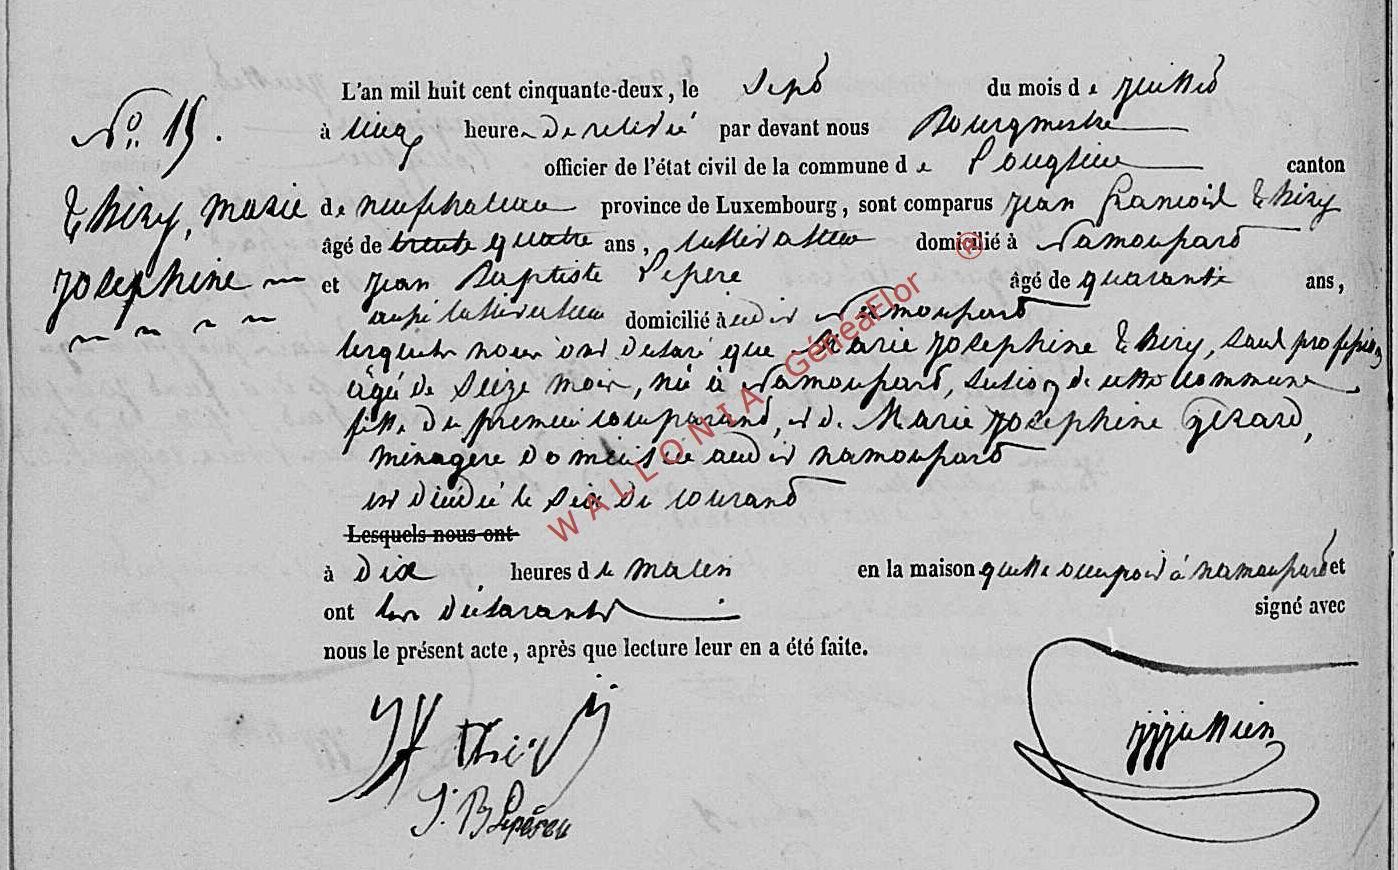 L'an mil huit cent cinquante-deux, le Sept du mois de juillet
N° 15.
à cinq heures de relevé par devant nous Bourgmestre
officier de l'état civil de la commune de Longlier canton
Thiry, Marie de neufchateau province de Luxembourg, sont comparus jean francois Thiry
âgé de trente quatre ans, cultivateur domicilié à Namoussart
Josephine et jean Baptiste Pepere âgé de quarante ans,
aussi cultivateur domicilié audit Namoussart
lesquels nous ont déclaré que Marie josephine Thiry, sans profession
âgée de Seize mois, née à Namoussart, section de cette commune
fille du premier comparant, et de Marie josephine Gerard,
ménagere domiciliée audit namoussart
est décédée le Six du courant
Lesquels nous ont
à dix heures du matin en la maison qu'elle occupoit à namoussart et
ont les déclarants signé avec
nous le présent acte, après que lecture leur en a été faite.
Thiry
J. B
WALLONIA GénéaFlor ®